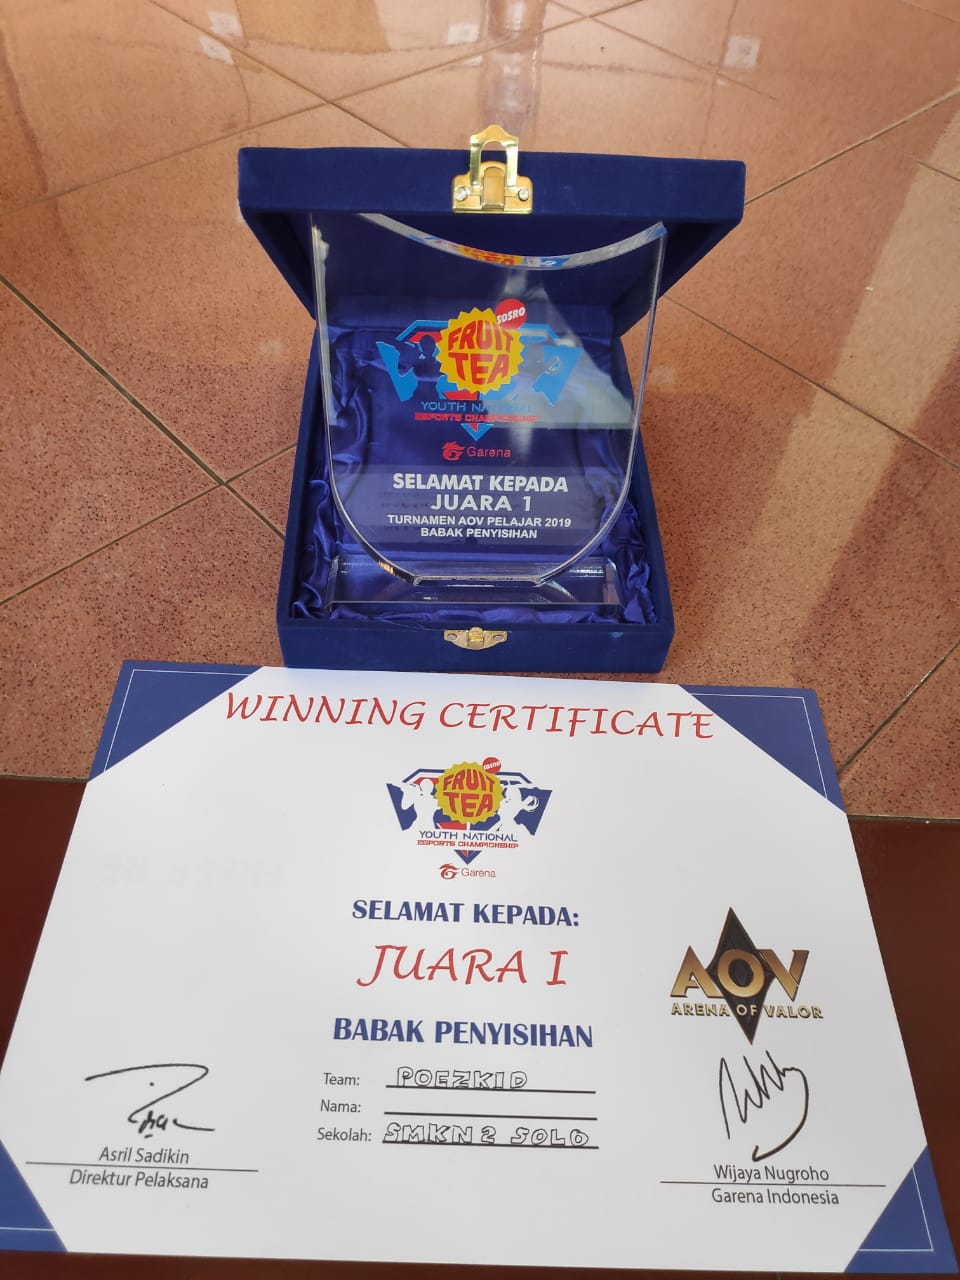 SOSRO
FRUIT
TEA
YOUTH NATIONAL
ESPORTS CHAMPIONSHIP
Garena
SELAMAT KEPADA
JUARA 1
TURNAMEN AOV PELAJAR 2019
BABAK PENYISIHAN
WINNING CERTIFICATE
SOSRO
FRUIT
TEA
YOUTH NATIONAL
ESPORTS CHAMPIONSHIP
Garena
SELAMAT KEPADA:
JUARA I
AOV
ARENA OF VALOR
BABAK PENYISIHAN
Team: POEZKID
Nama:
Sekolah: SMKN 2 SOLO
Asril Sadikin
Direktur Pelaksana
Wijaya Nugroho
Garena Indonesia